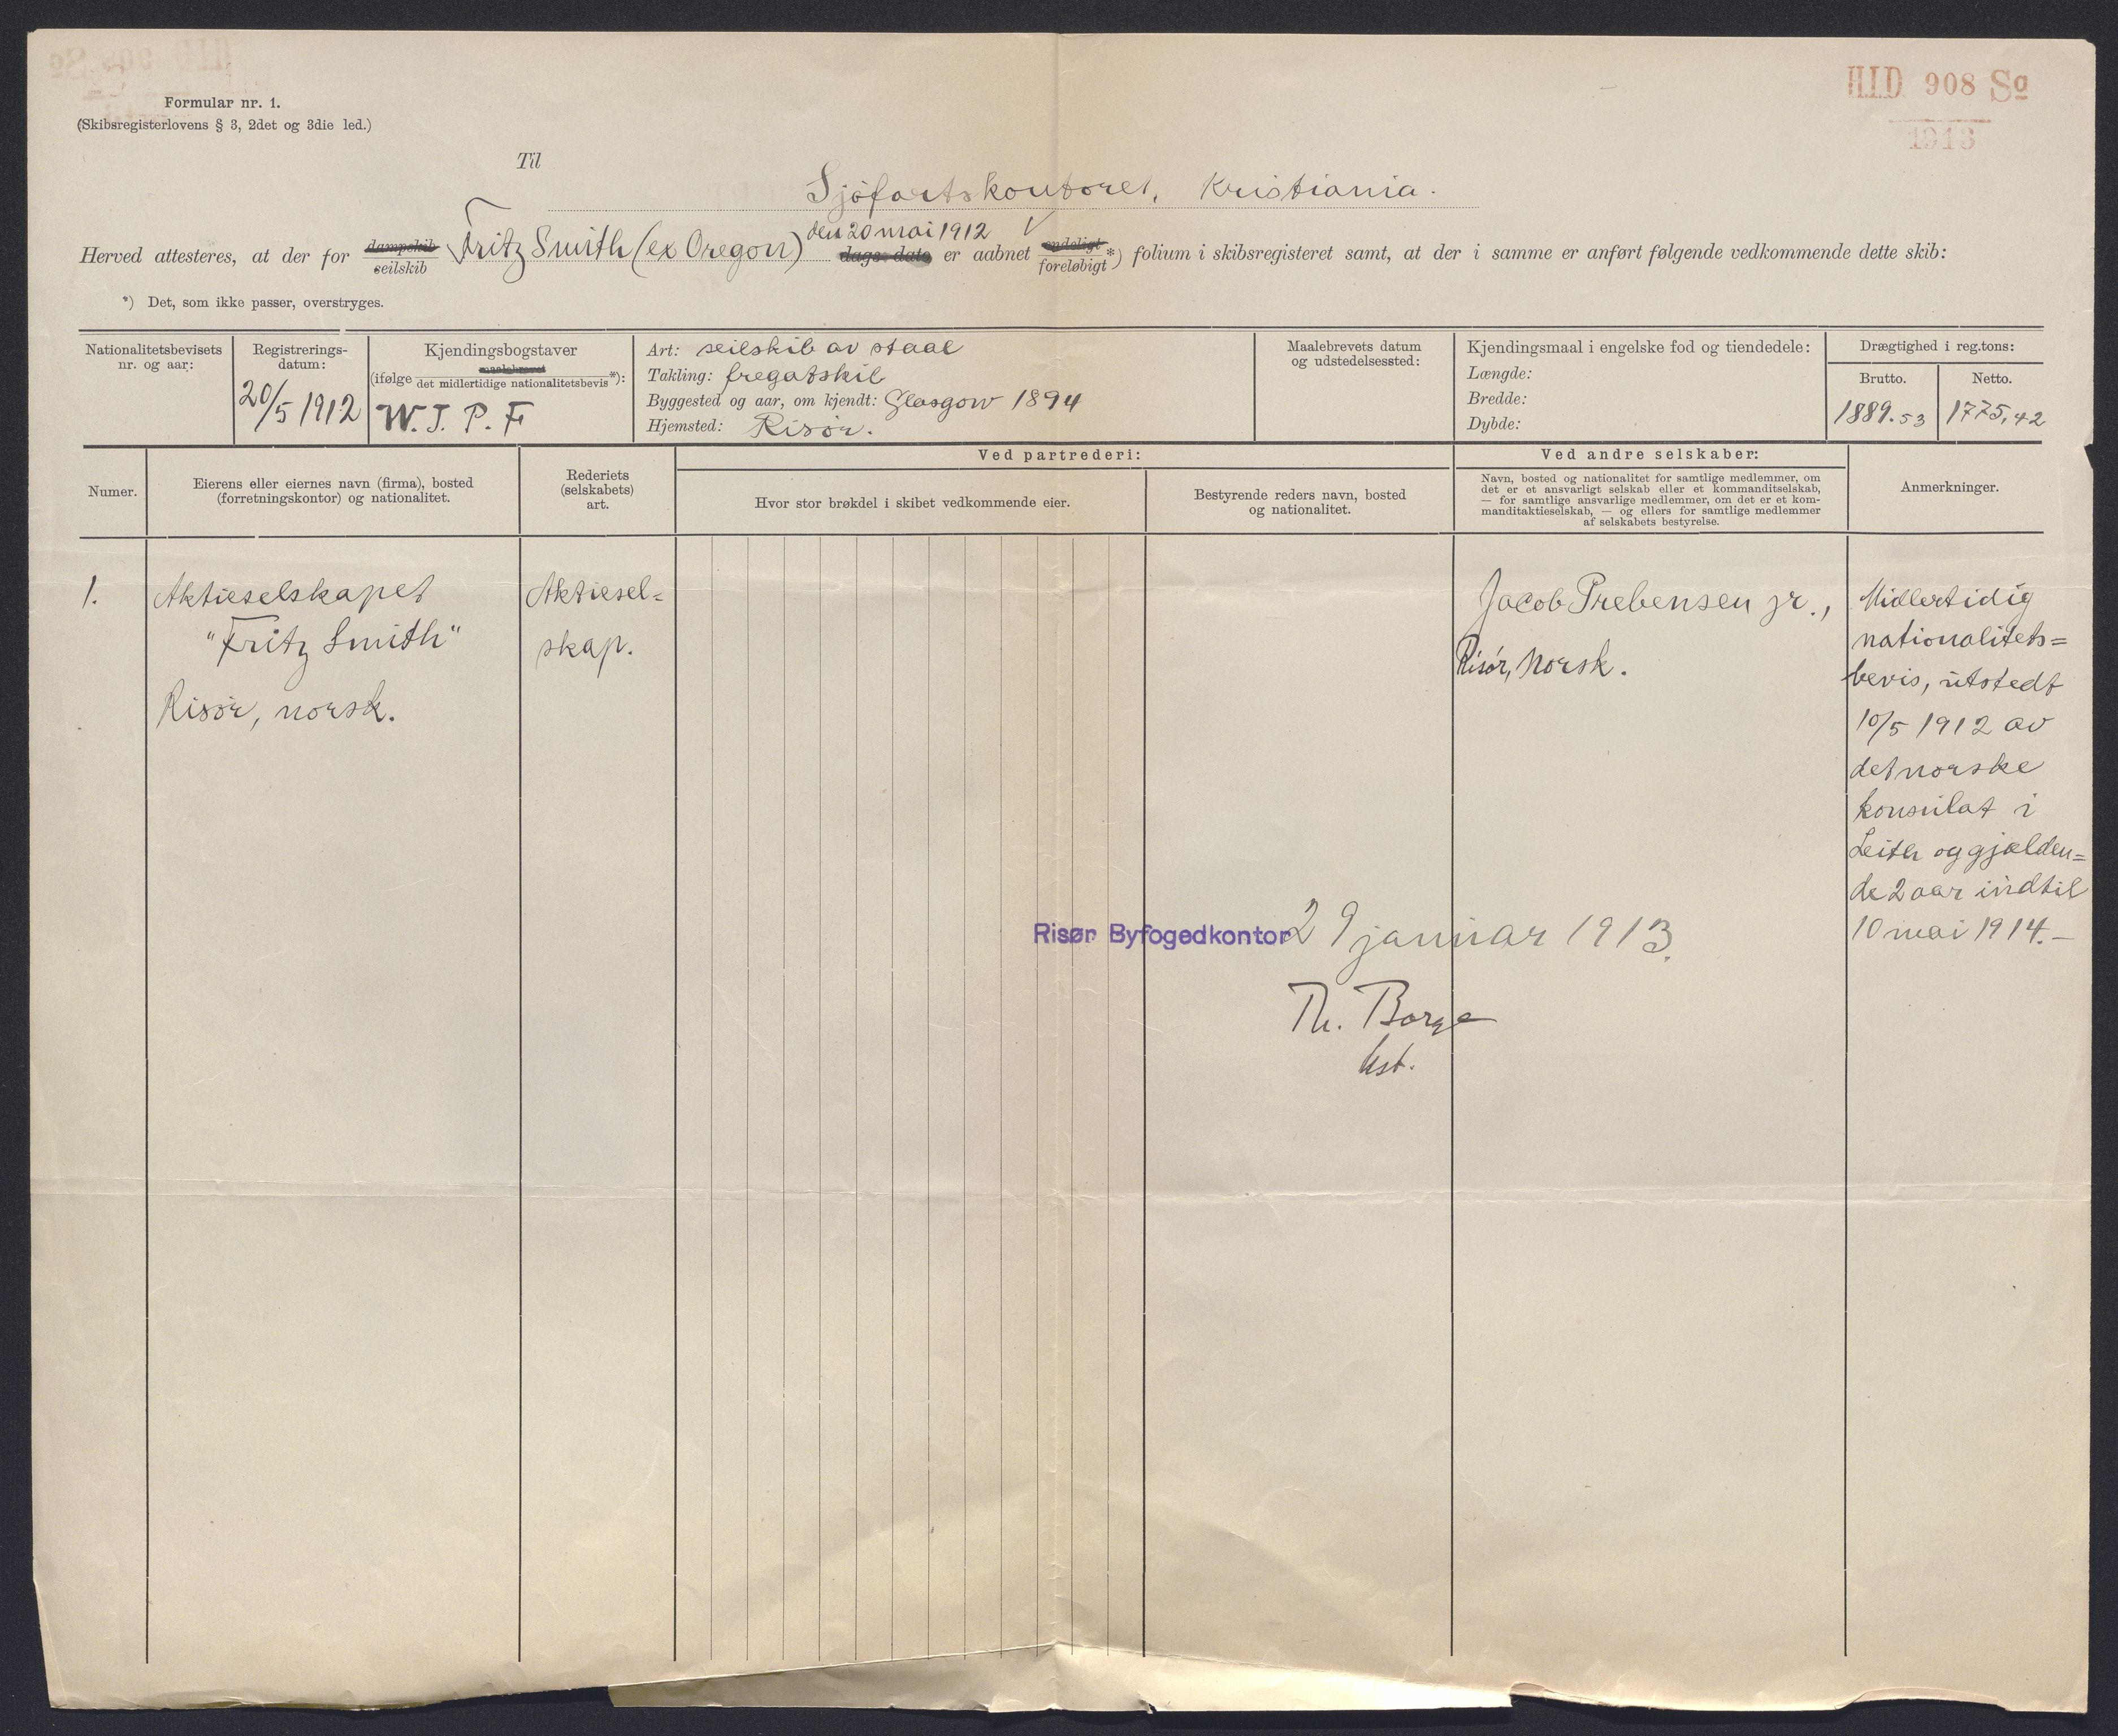 H.I.D 908 Sø
1913
Formular nr. 1.
(Skibsregisterlovens § 3, 2det og 3die led.)
Til
Sjøfartskontoret, Kristiania.
den 20 mai 1912
Herved attesteres, at der for dampskib seilskib Fritz Smith (ex Oregon) dags dato er aabnet endeligt foreløbigt *) folium i skibsregisteret samt, at der i samme er anført følgende vedkommende dette skib:
*) Det, som ikke passer, overstryges.
Nationalitetsbevisets
nr. og aar:
Registrerings-
datum:
20/5 1912
Kjendingsbogstaver
(ifølge maalebrevet det midlertidige nationalitetsbevis*):
W. J. P. F
Art: seilskib av staal
Takling: fregatskib
Byggested og aar, om kjendt: Glasgow 1894
Hjemsted: Risør.
Maalebrevets datum
og udstedelsessted:
Kjendingsmaal i engelske fod og tiendedele:
Længde:
Bredde:
Dybde:
Drægtighed i reg.tons:
Brutto.
1889.53
Netto.
1775,42
Numer.
Eierens eller eiernes navn (firma), bosted
(forretningskontor) og nationalitet.
Rederiets
(selskabets)
art.
Ved partrederi:
Hvor stor brøkdel i skibet vedkommende eier.
Bestyrende reders navn, bosted
og nationalitet.
Ved andre selskaber:
Navn, bosted og nationalitet for samtlige medlemmer, om
det er et ansvarligt selskab eller et kommanditselskab,
— for samtlige ansvarlige medlemmer, om det er et kom-
manditaktieselskab, — og ellers for samtlige medlemmer
af selskabets bestyrelse.
Anmerkninger.
1.
Aktieselskapet
"Fritz Smith"
Risør, norsk.
Aktiesel=
skap.
Jacob Prebensen jr.,
Risør, Norsk.
Midlertidig
nationalitets=
bevis, utstedt
10/5 1912 av
det norske
konsulat i
Leith og gjælden=
de 2 aar indtil
10 mai 1914.—
Risør Byfogedkontor 29 januar 1913.
Th. Borge
kst.